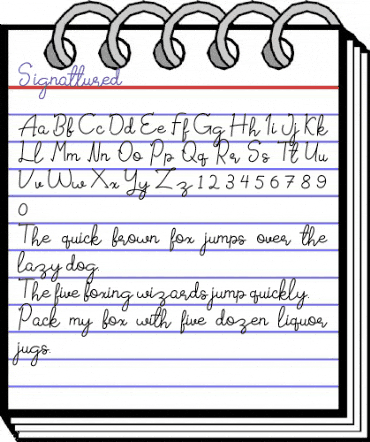 Signattured
Aa Bb Cc Dd Ee Ff Gg Hh Ii Jj Kk
Ll Mm Nn Oo Pp Qq Rr Ss Tt Uu
Vv Ww Xx Yy Zz 1 2 3 4 5 6 7 8 9
0
The quick brown fox jumps over the
lazy dog.
The five boxing wizards jump quickly.
Pack my box with five dozen liquor
jugs.